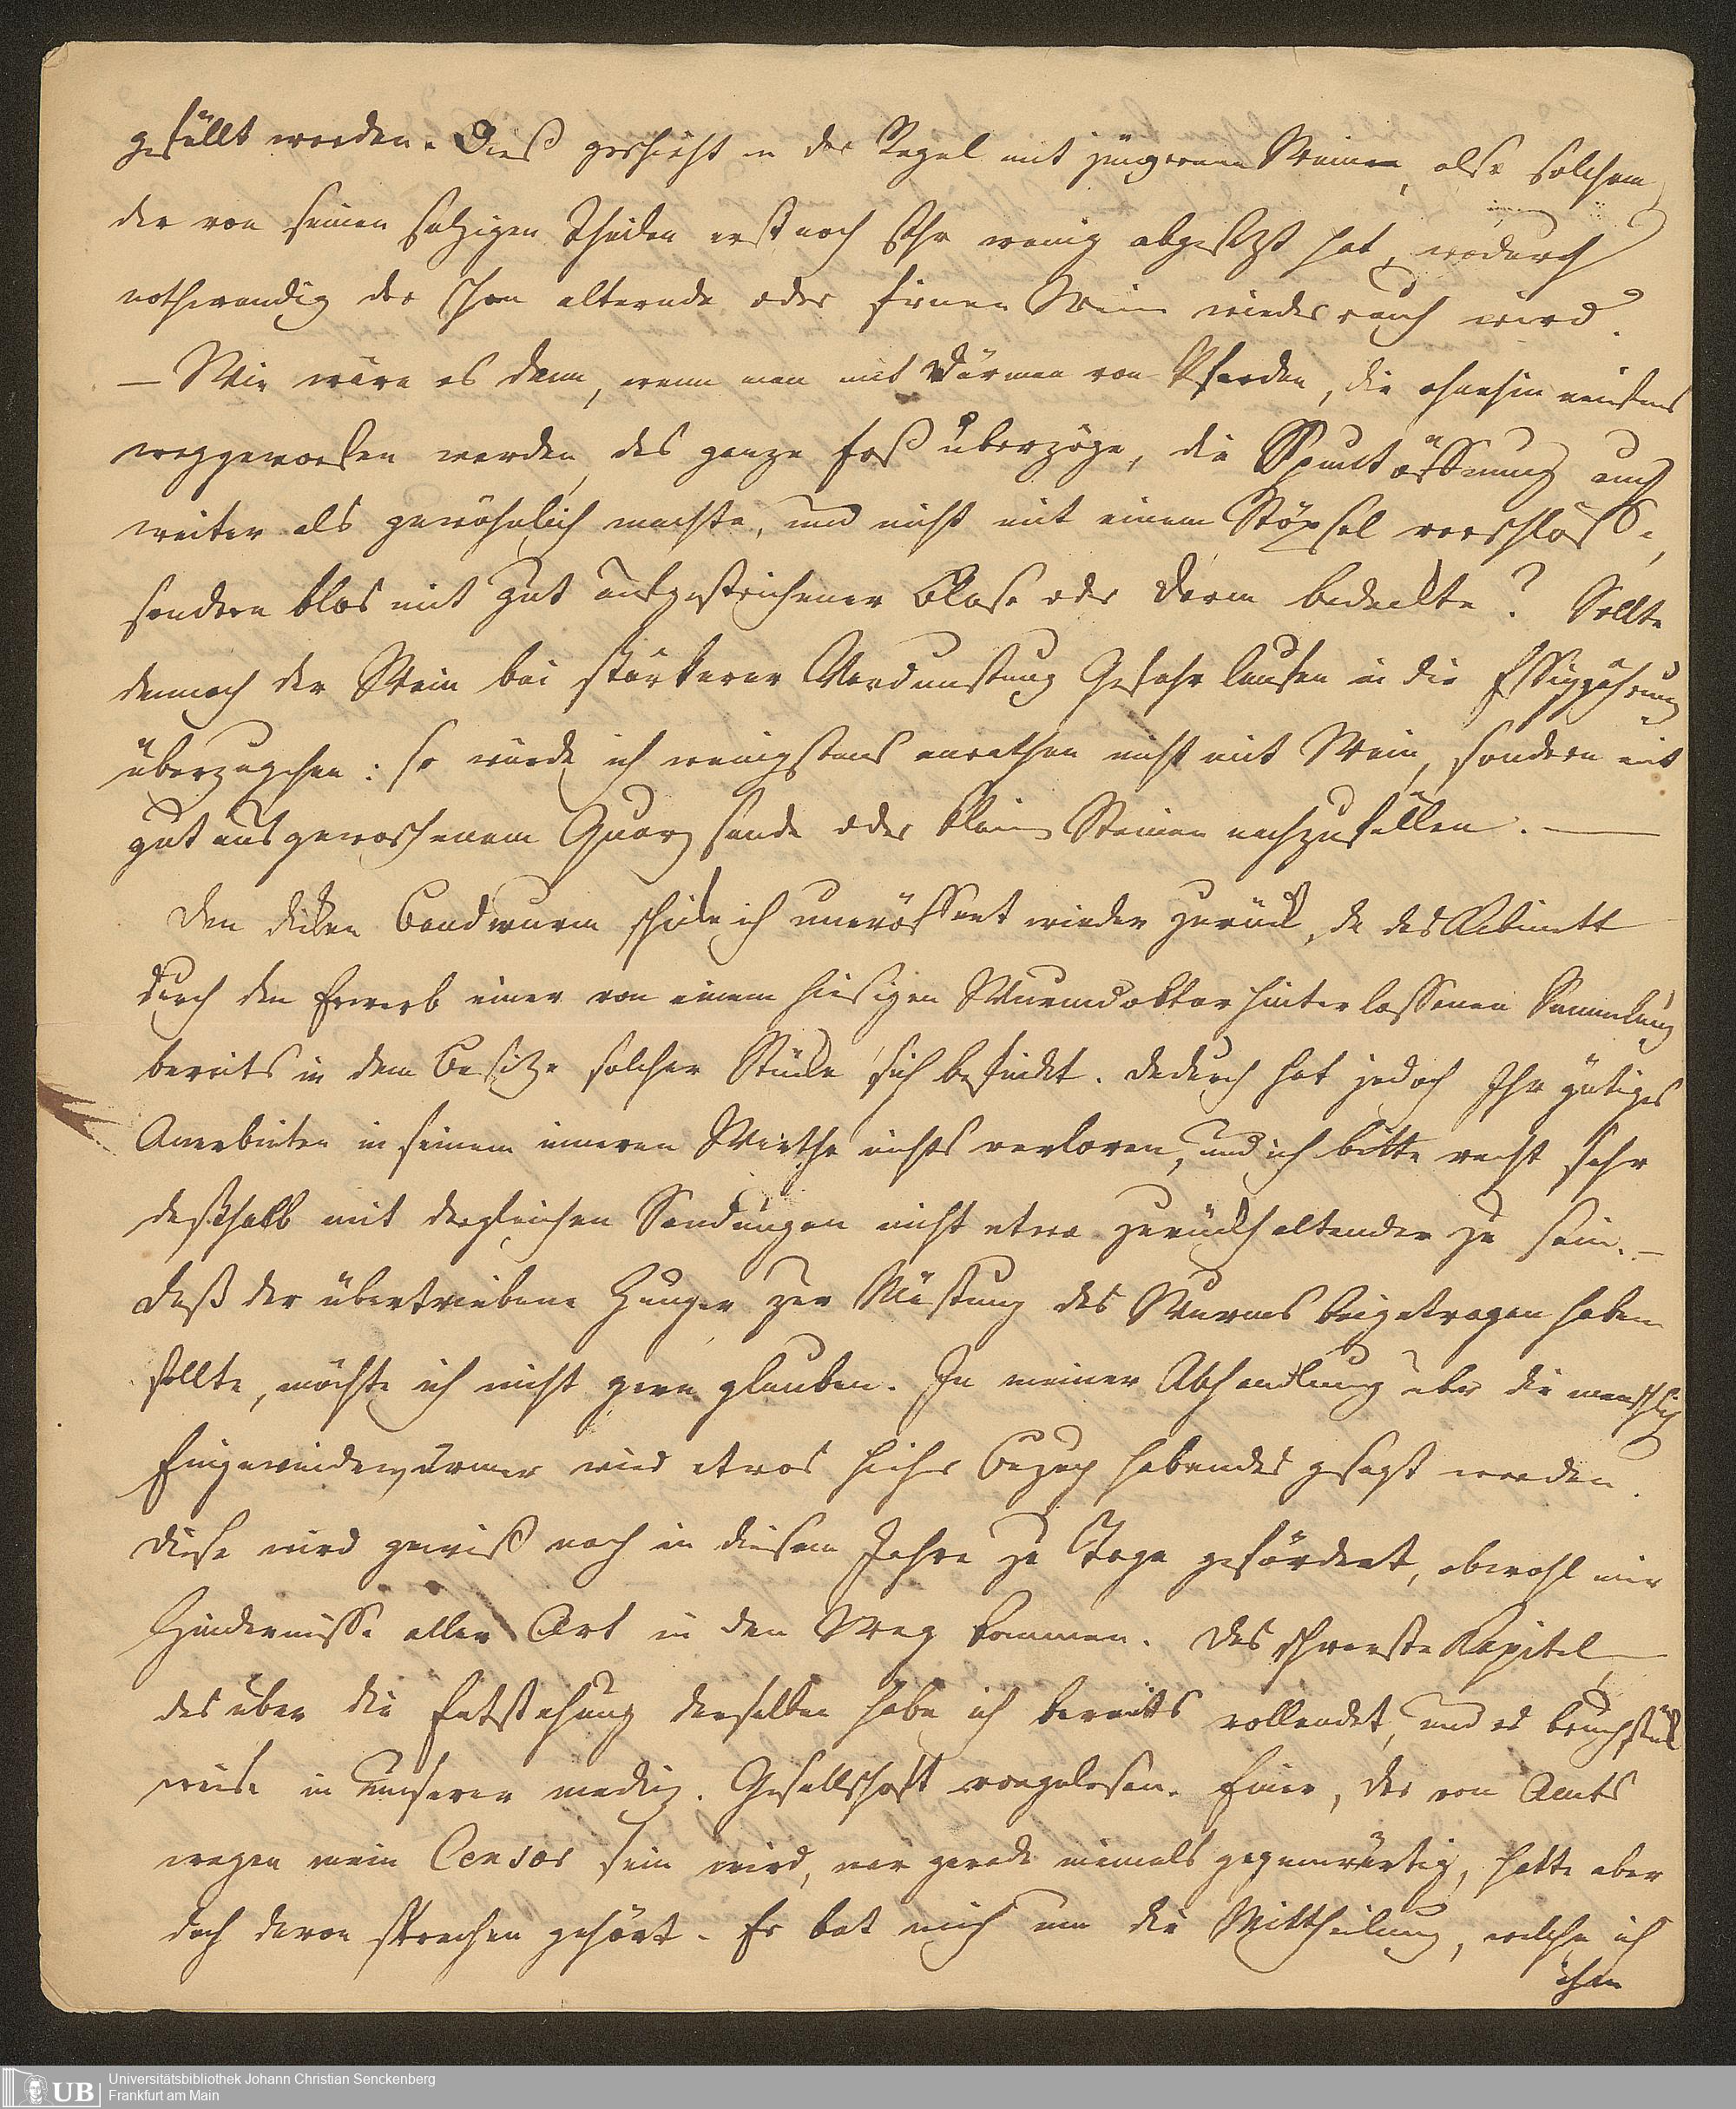 gefüllt werden. Dieß geschieht in der Regel mit jüngerem Weine, also solchem,
der von seinen salzigen Theilen erst noch sehr wenig abgesetzt hat, wodurch
nothwendig der schon alternde oder firnen Wein wieder rauh wird.
– Wie wäre es denn, wenn man mit Därmen von Pferden, die ohnehin meistens
weggeworfen werden, das ganze Faß überzöge, die Spuntöffnung auch
weiter als gewöhnlich machte, und nicht mit einem Stöpsel verschlöße,
sondern blos mit gut aufgestrichener Blase oder Darm bedeckte? Sollte
dennoch der Wein bei stärkerer Verdunstung Gefahr laufen in die Essiggährung
überzugehen: so würde ich wenigstens anrathen nicht mit Wein, sondern mit
gut ausgewaschenem Quarzsande oder kleinen Steinen nachzufüllen. —
Den dicken Bandwurm schicke ich uneröffnet wieder zurück, da das Kabinett
durch den Erwerb einer von einem hiesigen Wurmdoktor hinterlassenen Sammlung
bereits in dem Besitze solcher Stücke sich befindet. Dadurch hat jedoch Ihr gütiges
Anerbieten in seinem inneren Werthe nichts verloren, und ich bitte recht sehr
deßhalb mit dergleichen Sendungen nicht etwa zurückhaltender zu sein. –
Daß der übertriebene Hunger zur Mästung des Wurmes beigetragen haben
sollte, möchte ich nicht gern glauben. In meiner Abhandlung über die menschlich
Eingeweidewürmer wird etwas hieher Bezug habendes gesagt werden.
Diese wird gewiß noch in diesem Jahre zu Tage gefördert, obwohl mir
Hindernisse aller Art in den Weg kommen. Das schwerste Kapitel,
das über die Entstehung derselben habe ich bereits vollendet, und es bruchstück
weise in unserer mediz. Gesellschaft vorgelesen. Einer, der von Amts
wegen mein Censor sein wird, war gerade niemals gegenwärtig, hatte aber
doch davon sprechen gehört. Er bat mich um die Mittheilung, welche ich
ihm
Universitätsbibliothek Johann Christian Senckenberg
UB Frankfurt am Main